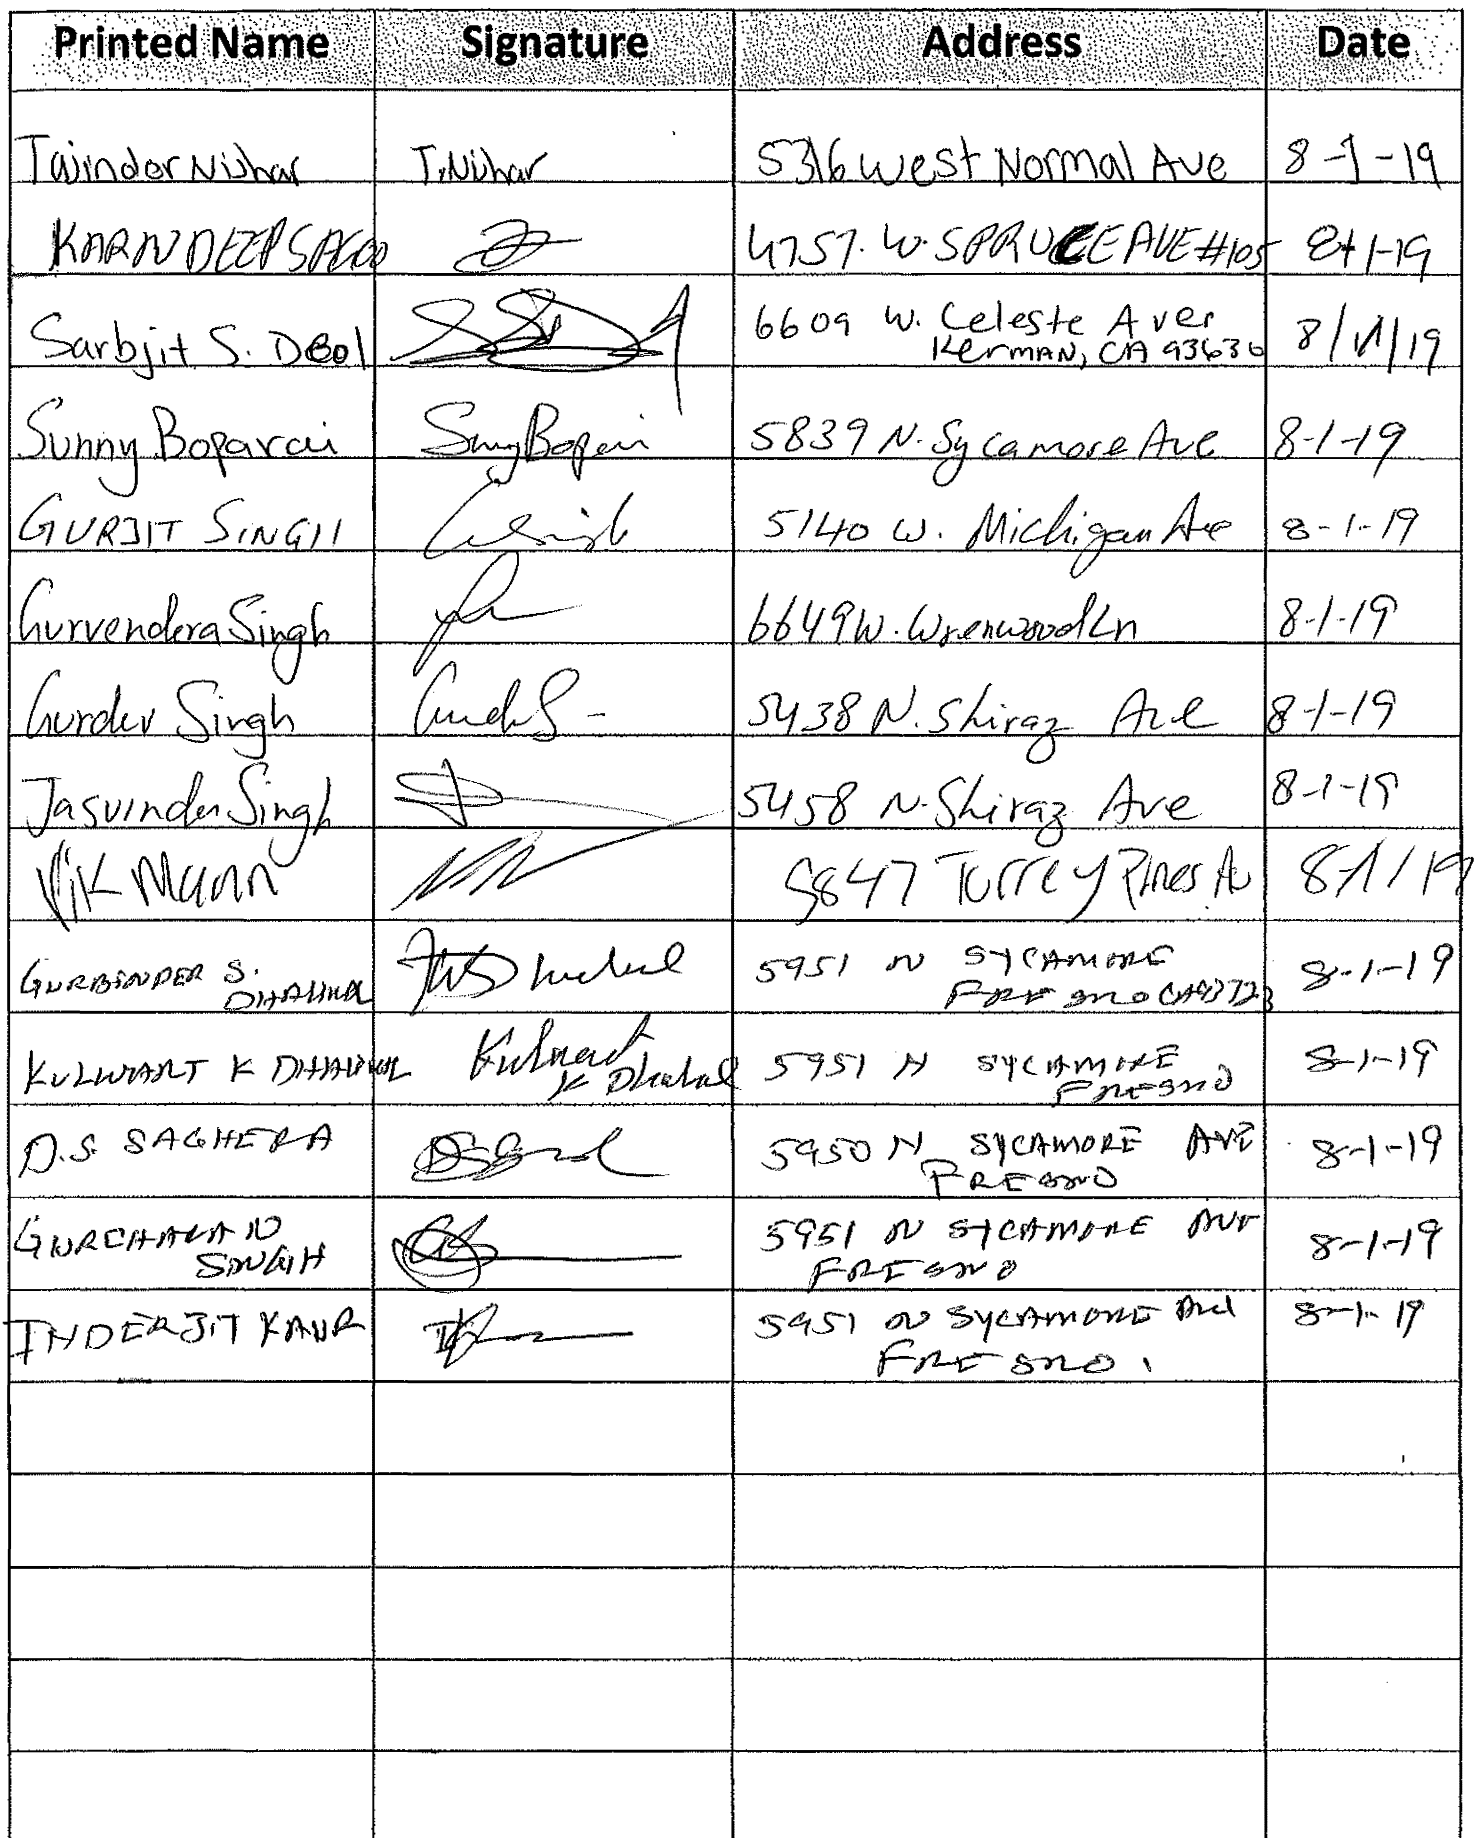 Printed Name Signature Address Date
Tajinder Nijhar T. Nijhar 5316 West Normal Ave 8-1-19
KARANDEEP SAGOO 4757. W. SPRUCE AVE #105 8-1-19
Sarbjit S. Deol 6609 W. Celeste Aver 8/1/19
Kerman, CA 93630
Sunny Boparai Sunny Boparai 5839 N. Sycamore Ave 8-1-19
GURJIT SINGH 5140 W. Michigan Ave 8-1-19
Gurvendera Singh 6649 W. Wrenwood Ln 8-1-19
Gurdev Singh 5438 N. Shiraz Ave 8-1-19
Jasvinder Singh 5458 N. Shiraz Ave 8-1-19
Vik Mann 5847 Torrey Pines Av 8/1/19
GURBINDER S. 5951 N SYCAMORE 8-1-19
DHALIWAL FRESNO CA 93723
KULWANT K DHALIWAL 5951 N SYCAMORE 8-1-19
K Dhaliwal FRESNO
D.S. SAGHERA 5950 N SYCAMORE AVE 8-1-19
FRESNO
GURCHARAN 5951 N SYCAMORE AVE 8-1-19
SINGH FRESNO
INDERJIT KAUR 5951 N SYCAMORE Ave 8-1-19
FRESNO